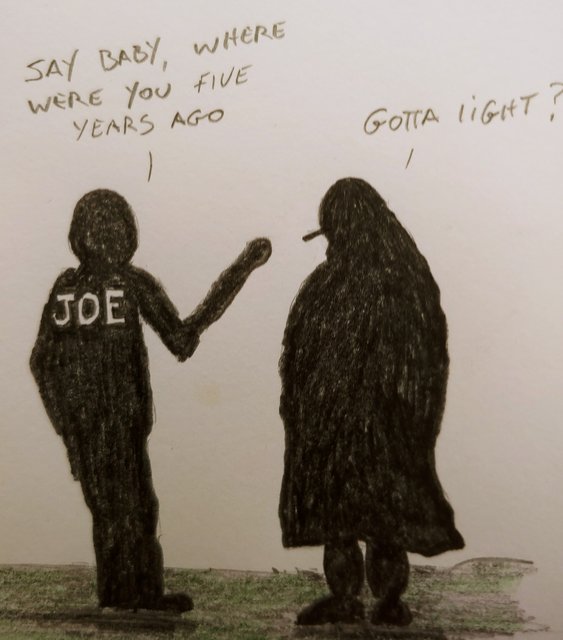 SAY BABY, WHERE
WERE YOU FIVE
YEARS AGO
GOTTA liGHT?
JOE